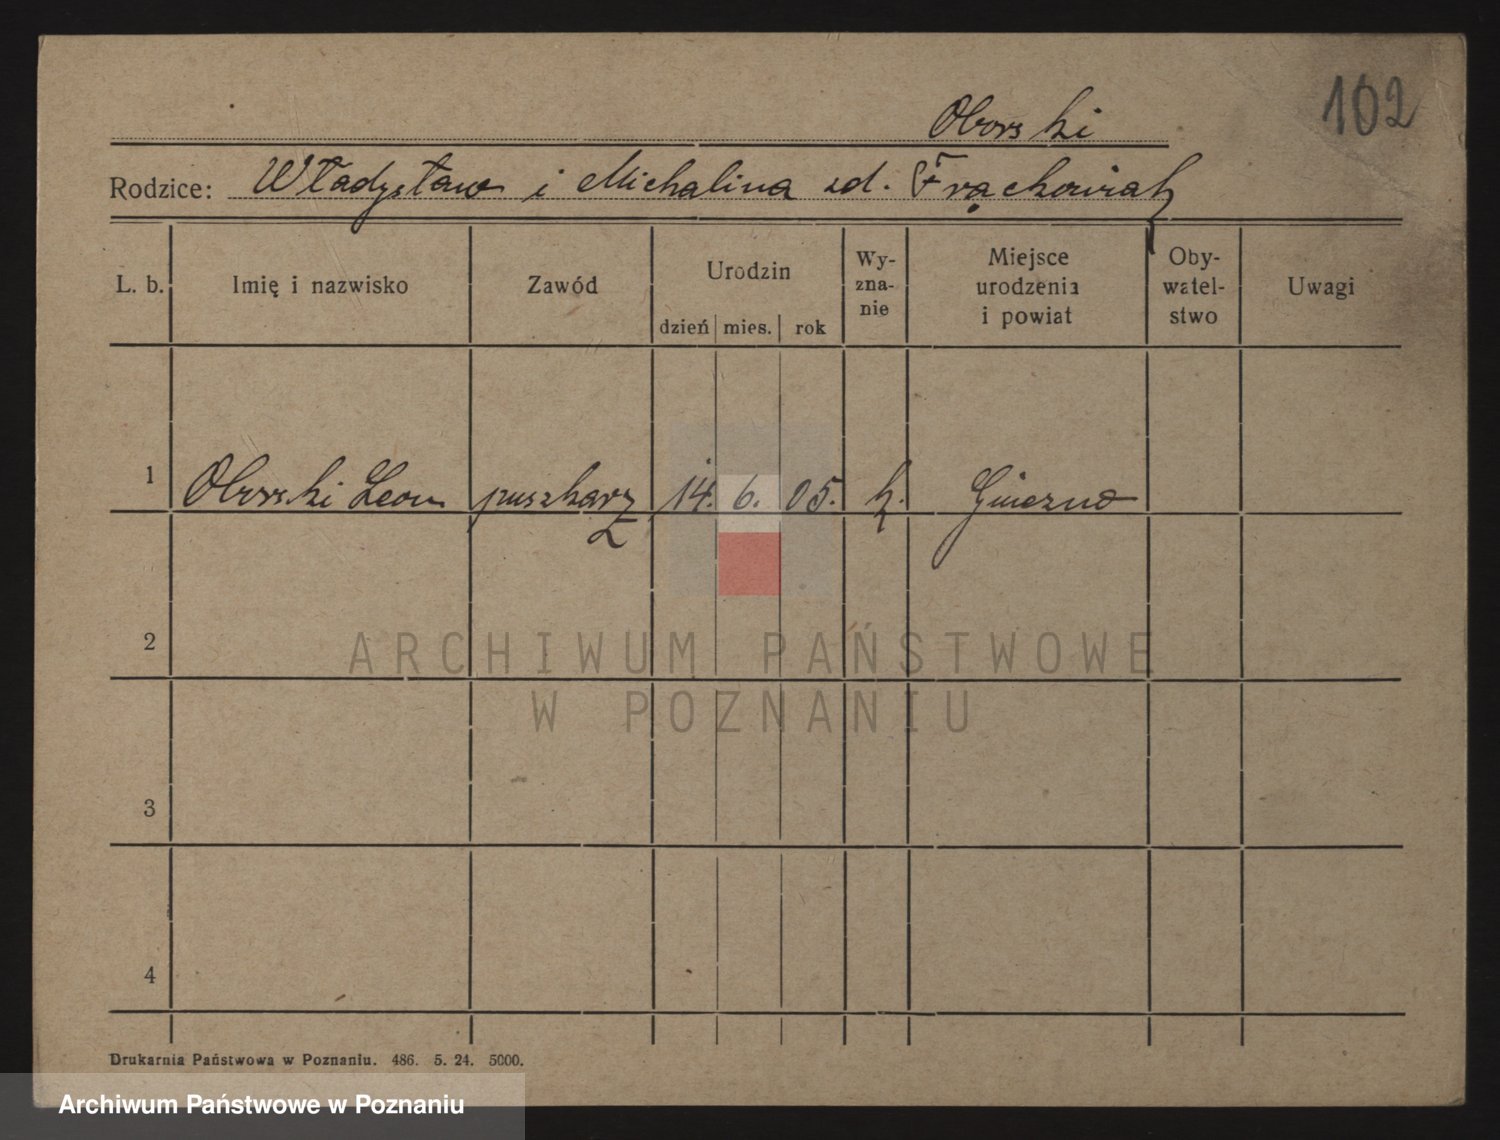 102
Oborski
Rodzice: Władysław i Michalina zd. Frąckowiak
L. b. Imię i nazwisko Zawód Urodzin dzień mies. rok Wy-zna-nie Miejsce urodzenia i powiat Oby-watel-stwo Uwagi
1 Oborski Leon puszkarz 14. 6. 05. k. Gniezno
2
ARCHIWUM PAŃSTWOWE
W POZNANIU
3
4
Drukarnia Państwowa w Poznaniu. 486. 5. 24. 5000.
Archiwum Państwowe w Poznaniu